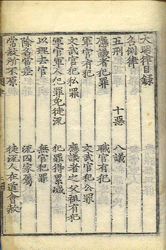 大明律目録
名例律
五刑 十惡 八議
應議者犯罪 職官有犯
軍官有犯 文武官犯公罪
文武官犯私罪 應議者之父祖有犯
軍官軍人犯罪免徒流 犯罪得累減
以理去官 無官犯罪
除名當差 流囚家屬
常赦所不原 徒流人在道會赦